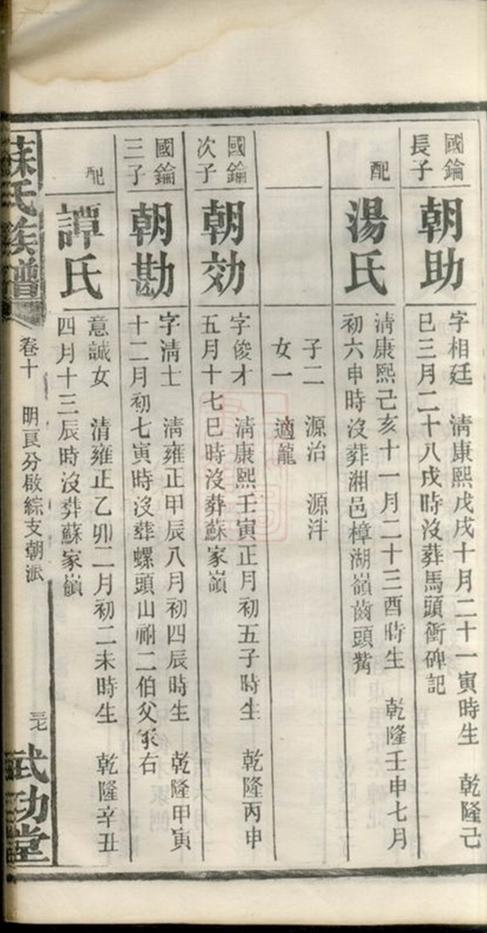 國鑰
長子
朝助
字相廷 清康熙戊戌十月二十一寅時生 乾隆己
巳三月二十八戌時沒葬馬頭衝碑記
配
湯氏
清康熙己亥十一月二十三酉時生 乾隆壬申七月
初六申時沒葬湘邑樟湖嶺齒頭觜
子二 源治 源泮
女一 適龍
國鑰
次子
朝効
字俊才 清康熙壬寅正月初五子時生 乾隆丙申
五月十七巳時沒葬蘇家嶺
國鑰
三子
朝勘
字清士 清雍正甲辰八月初四辰時生 乾隆甲寅
十二月初七寅時沒葬螺頭山祔二伯父冢右
配
譚氏
意誠女 清雍正乙卯二月初二未時生 乾隆辛丑
四月十三辰時沒葬蘇家嶺
蘇氏族譜
卷十 明房分啟綜支朝派
三七
武功堂